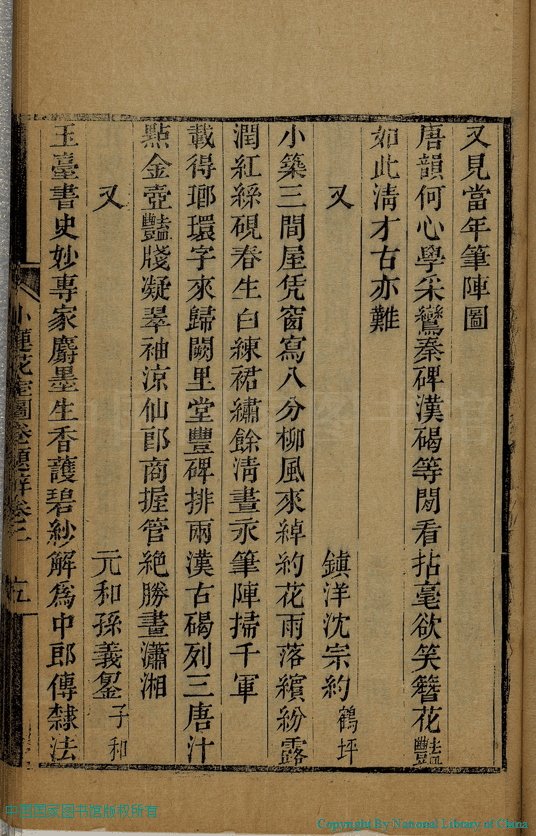 又見當年筆陣圖
唐韻何心學采鸞秦碑漢碣等閒看拈毫欲笑簪花豔
如此淸才古亦難
又 鎮洋沈宗約鶴坪
小築三間屋凭窗寫八分柳風來綽約花雨落繽紛露
潤紅絲硯春生白練裙繡餘淸晝永筆陣掃千軍
載得瑯環字來歸闕里堂豐碑排兩漢古碣列三唐汁
點金壺豔牋凝翠袖涼仙郎商握管絶勝畫瀟湘
又 元和孫義鋆子和
玉臺書史妙專家麝墨生香護碧紗解爲中郎傳隸法
小蓮花室圖卷題辭卷三
中国国家图书馆版权所有
Copyright By National Library of China